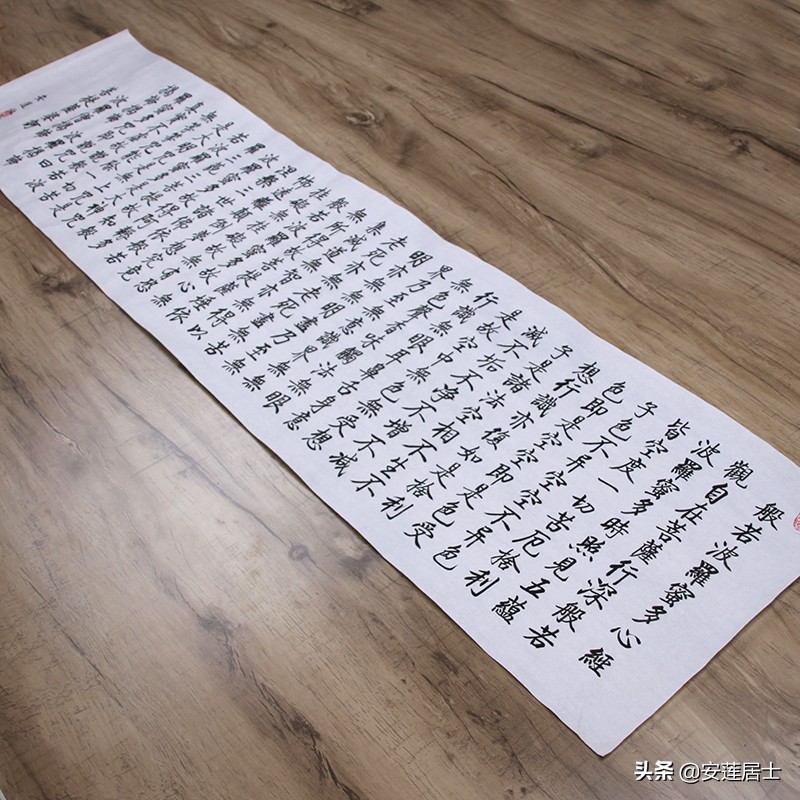 般若波羅蜜多心經
觀自在菩薩行深般若
波羅蜜多時照見五蘊
皆空度一切苦厄捨利
子色不异空空不异色
色即是空空即是色受
想行識亦復如是捨利
子是諸法空相不生不
滅不垢不淨不增不減
是故空中無色無受想
行識無眼耳鼻舌身意
無色聲香味觸法無眼
界乃至無意識界無無
明亦無無明盡乃至無
老死亦無老死盡無苦
集滅道無智亦無得以
無所得故菩提薩埵依
般若波羅蜜多故心無
挂礙無挂礙故無有恐
怖遠離顛倒夢想究竟
涅槃三世諸佛依般若
波羅蜜多故得阿耨多
羅三藐三菩提故知般
若波羅蜜多是大神咒
是大明咒是無上咒是
無等等咒能除一切苦
真實不虛故說般若波
羅蜜多咒即說咒曰
揭諦揭諦波羅揭諦
波羅僧揭諦
菩提薩婆訶
安蓮
头条 @安莲居士